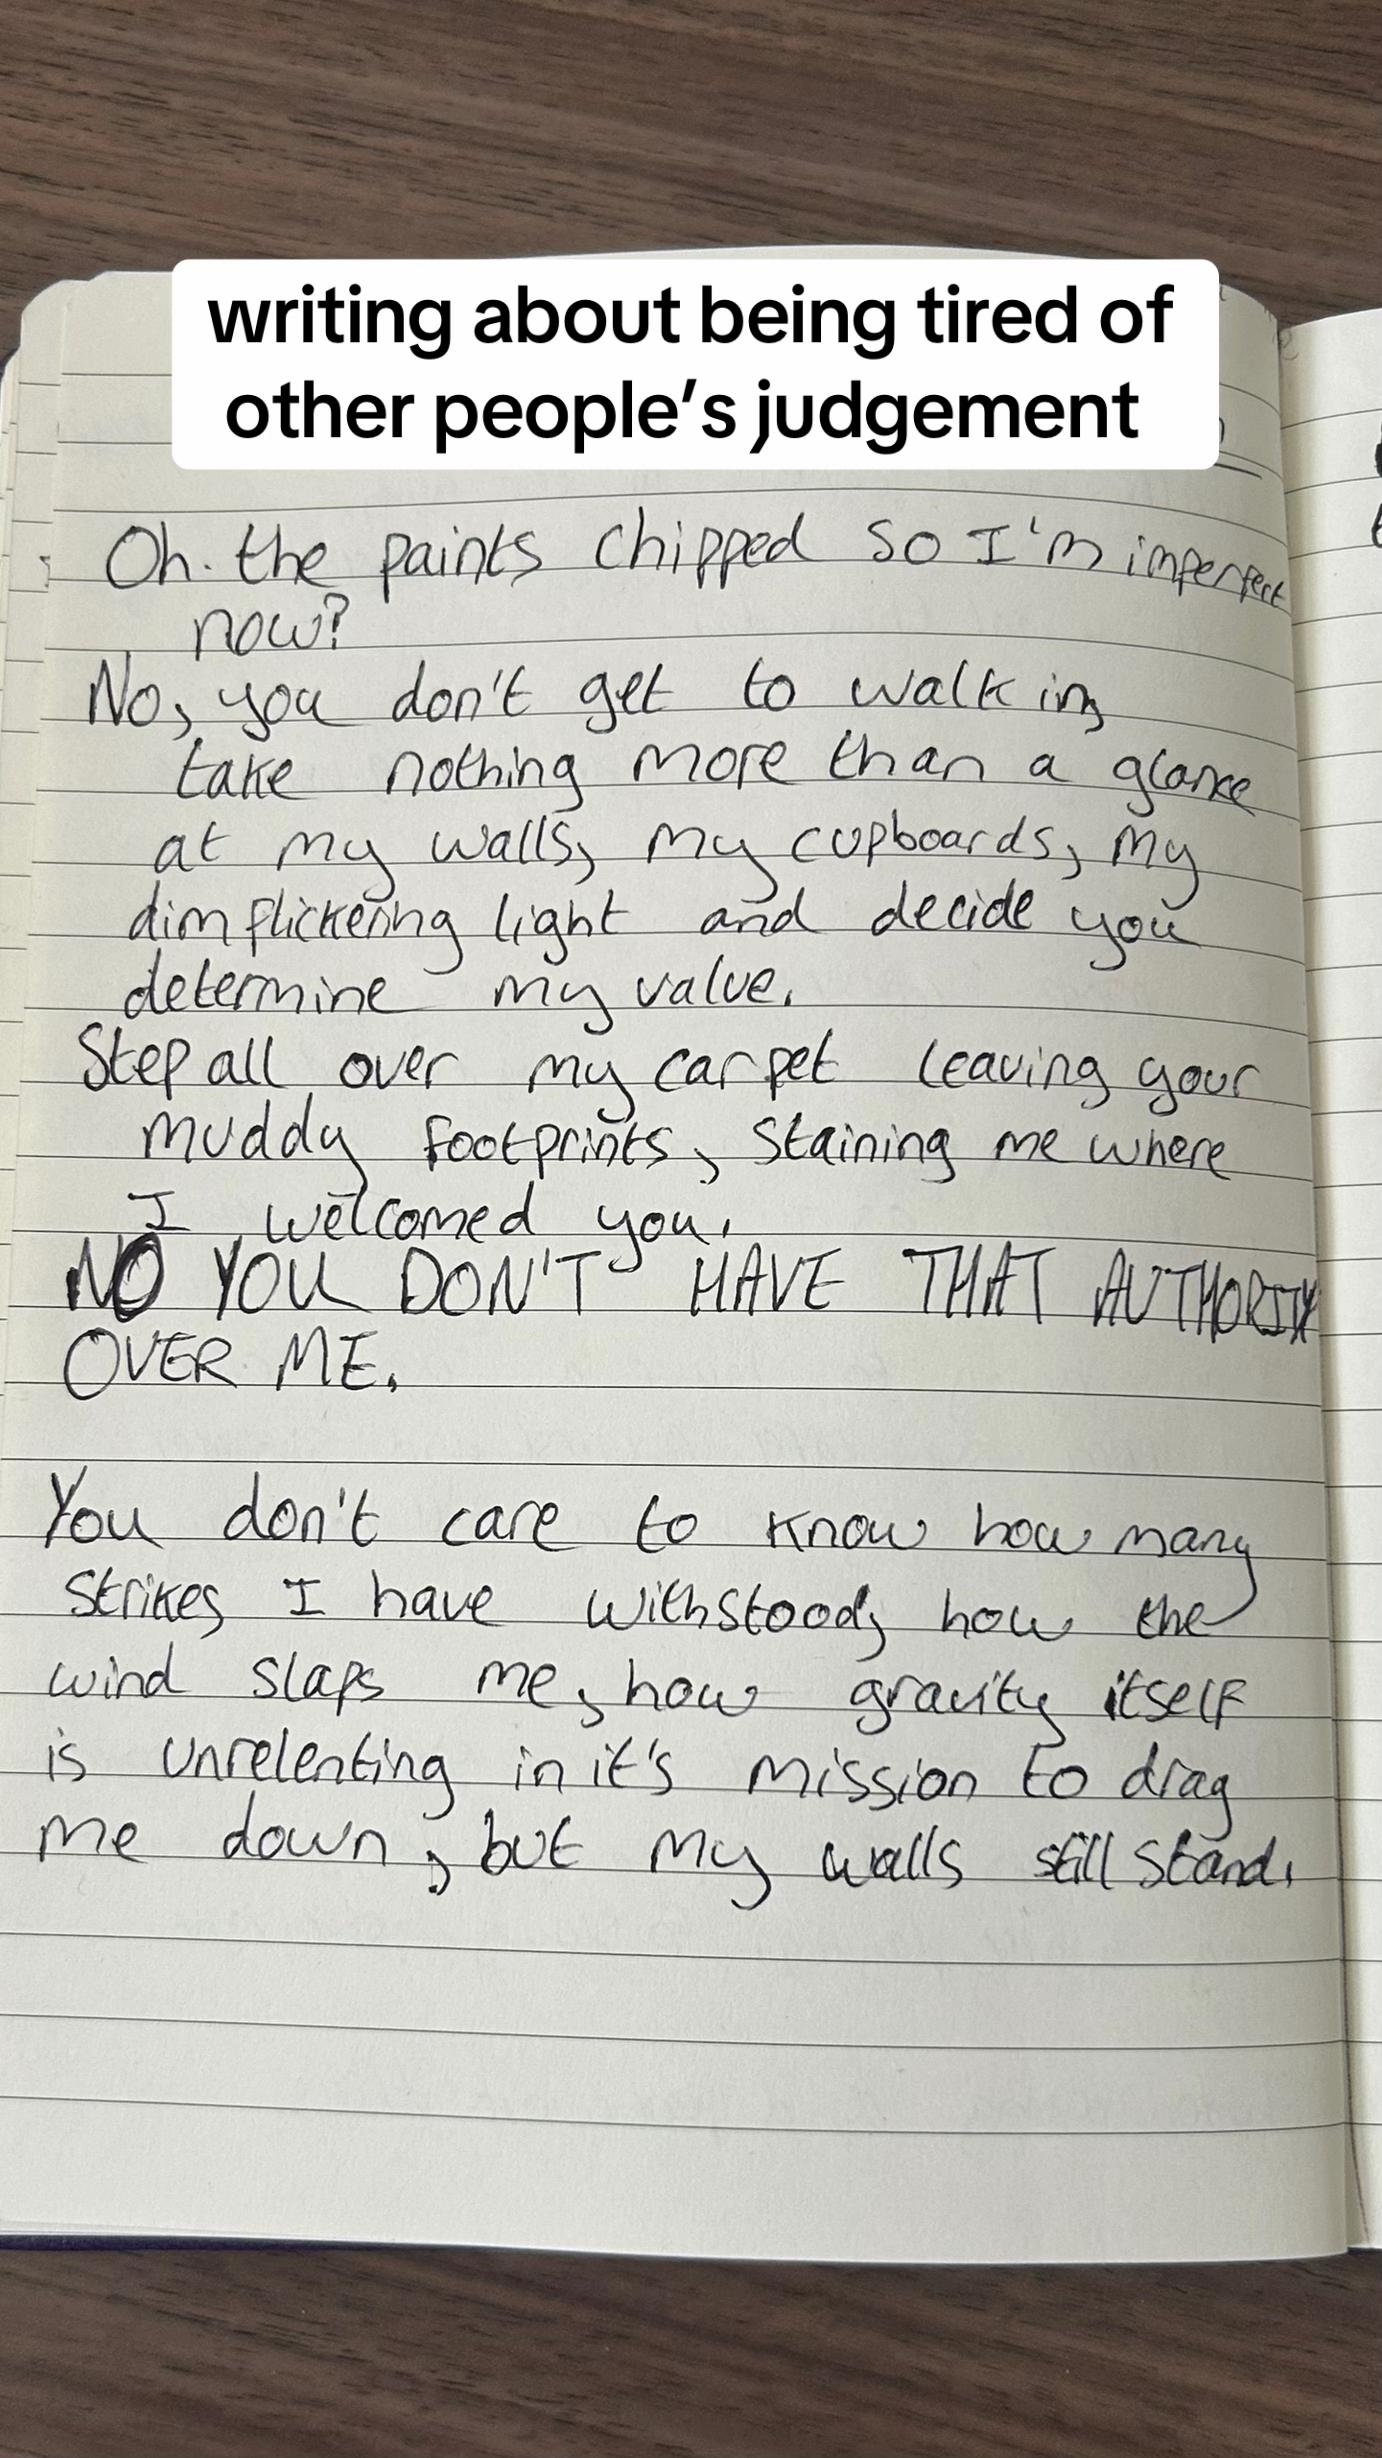 writing about being tired of
other people’s judgement
Oh. the paints chipped so I'm imperfect
now?
No, you don't get to walk in,
take nothing more than a glance
at my walls, my cupboards, my
dim flickering light and decide you
determine my value.
Step all over my carpet leaving your
muddy footprints, staining me where
I welcomed you.
NO YOU DON'T HAVE THAT AUTHORITY
OVER ME.
You don't care to know how many
strikes I have withstood, how the
wind slaps me, how gravity itself
is unrelenting in it's mission to drag
me down, but my walls still stand.